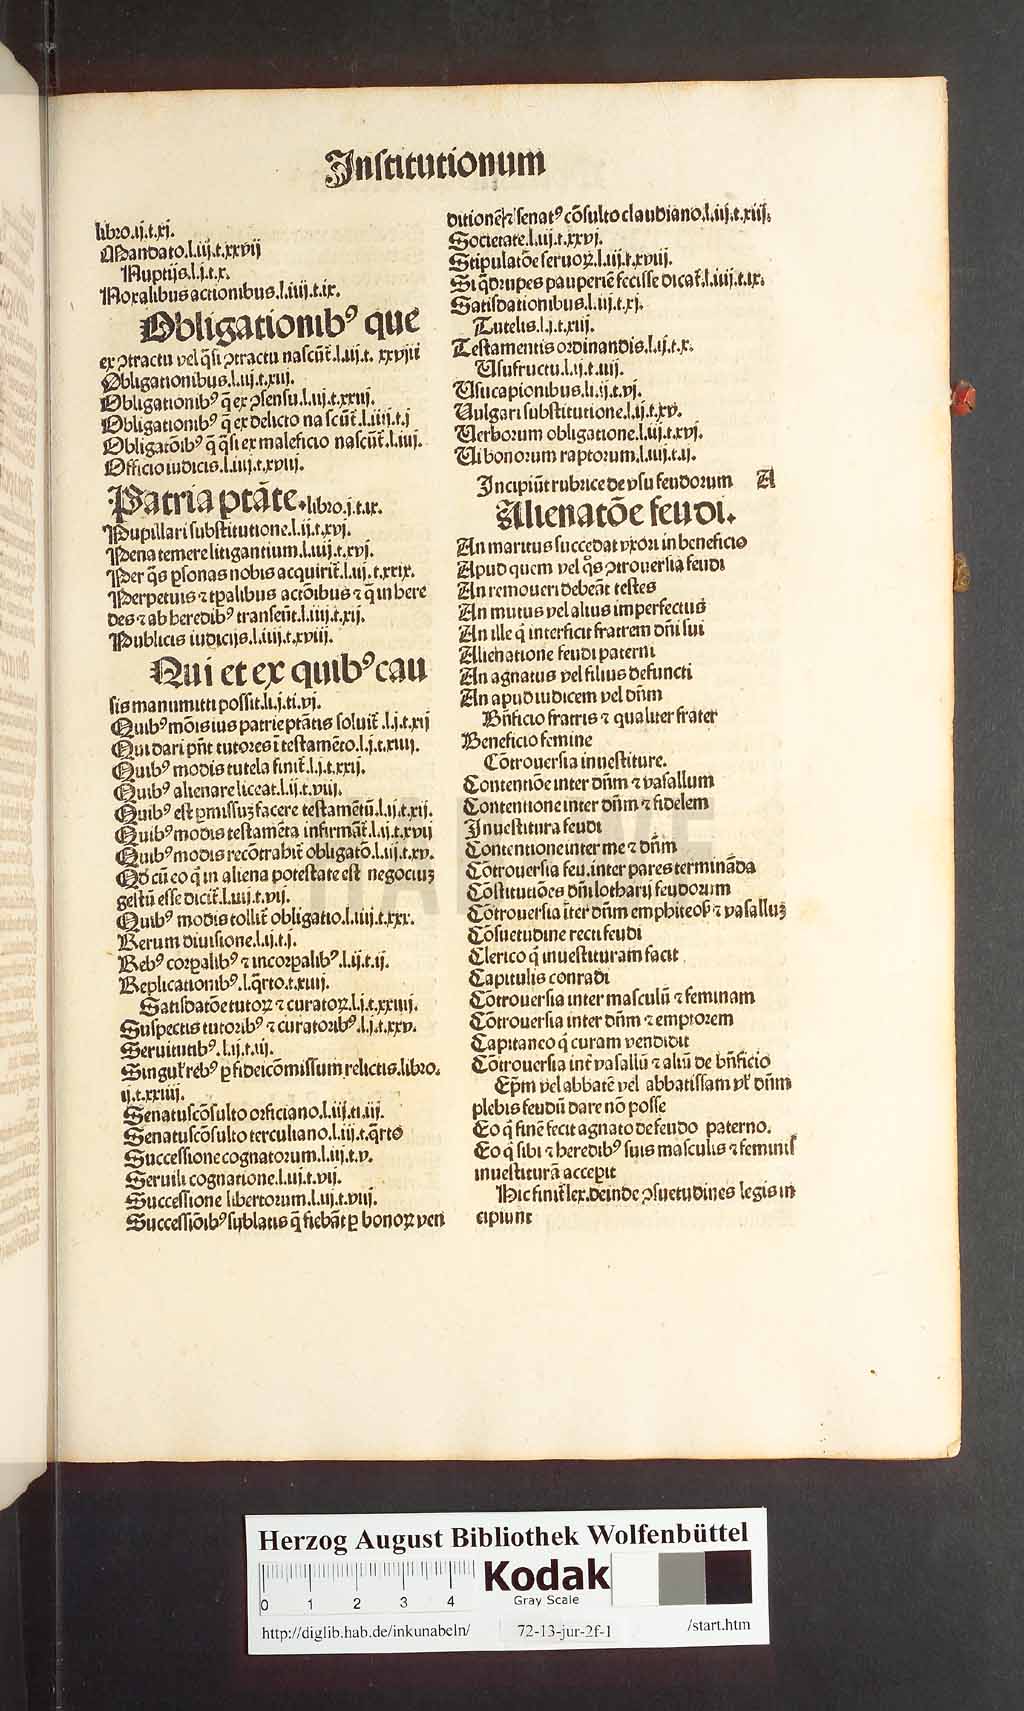 Institutionum
libro.ij.t.xj.
Mandato.l.iij.t.xxvij
Nuptijs.l.j.t.x.
Noxalibus actionibus.l.iiij.t.ix.
Obligationibꝰ que
ex ↄtractu vel q̄si ↄtractu nascūt̄.l.iij.t.xxviii
Obligationibus.l.iij.t.xiij.
Obligationibꝰ q̄ ex ↄsensu.l.iij.t.xxiij.
Obligationibꝰ q̄ ex delicto nascūt̄.l.iiij.t.j
Obligatōibꝰ q̄ q̄si ex maleficio nascūt̄.l.iiij.
Officio iudicis.l.iiij.t.xviij.
Patria ptāte.libro.j.t.ix.
Pupillari substitutione.l.ij.t.xvj.
Pena temere litigantium.l.iiij.t.xvj.
Per q̄s ꝑsonas nobis acquirit̄.l.iij.t.xxix.
Perpetuis ⁊ tꝑalibus actōibus ⁊ q̄ in here
des ⁊ ab heredibꝰ transeūt.l.iiij.t.xij.
Publicis iudicijs.l.iiij.t.xviij.
Qui et ex quibꝰ cau
sis manumitti possit.li.j.ti.vj.
Quibꝰ mōis ius patrie ptātis soluit̄.l.j.t.xij
Qui dari pn̄t tutores ī testamēto.l.j.t.xiiij.
Quibꝰ modis tutela finit̄.l.j.t.xxij.
Quibꝰ alienare liceat.l.ij.t.viij.
Quibꝰ est ꝑmissuꝫ facere testamētū.l.ij.t.xij.
Quibꝰ modis testamēta infirmāt̄.l.ij.t.xvij
Quibꝰ modis recōtrahit̄ obligatō.l.iij.t.xv.
Qd̄ cū eo q̄ in aliena potestate est negociuꝫ
gestū esse dicit̄.l.iiij.t.vij.
Quibꝰ modis tollit̄ obligatio.l.iiij.t.xxx.
Rerum diuisione.l.ij.t.j.
Rebꝰ corꝑalibꝰ ⁊ incorꝑalibꝰ.l.ij.t.ij.
Replicationibꝰ.l.q̄rto.t.xiiij.
Satisdatōe tutoꝝ ⁊ curatoꝝ.l.j.t.xxiiij.
Suspectis tutoribꝰ ⁊ curatoribꝰ.l.j.t.xxv.
Seruitutibꝰ.l.ij.t.iij.
Singul̄ rebꝰ ꝑ fideicōmissum relictis.libro.
ij.t.xxiiij.
Senatuscōsulto orficiano.l.iij.ti.iij.
Senatuscōsulto terculiano.l.iij.t.q̄rto
Successione cognatorum.l.iij.t.v.
Seruili cognatione.l.iij.t.vij.
Successione libertorum.l.iij.t.viij.
Successiōibꝰ sublatis q̄ fiebāt ꝑ bonoꝝ ven
ditionē ⁊ senatꝰ cōsulto claudiano.l.iij.t.xiij.
Societate.l.iij.t.xxvj.
Stipulatōe seruoꝝ.l.iij.t.xviij.
Si q̄drupes pauperiē fecisse dicat̄.l.iiij.t.ix.
Satisdationibus.l.iij.t.xj.
Tutelis.l.j.t.xiij.
Testamentis ordinandis.l.ij.t.x.
Usufructu.l.ij.t.iiij.
Usucapionibus.li.ij.t.vj.
Uulgari substitutione.l.ij.t.xv.
Uerborum obligatione.l.iij.t.xvj.
Ui bonorum raptorum.l.iiij.t.ij.
Incipiūt rubrice de vsu feudorum A
Alienatōe feudi.
An maritus succedat vxori in beneficio
Apud quem vel q̄s ↄtrouersia feudi
An remoueri debeāt testes
An mutus vel alius imperfectus
An ille q̄ interficit fratrem dn̄i sui
Alienatione feudi paterni
An agnatus vel filius defuncti
An apud iudicem vel dn̄m
Bn̄ficio fratris ⁊ qualiter frater
Beneficio femine
Cōtrouersia inuestiture.
Contentiōe inter dn̄m ⁊ vasallum
Contentione inter dn̄m ⁊ fidelem
Inuestitura feudi
Contentione inter me ⁊ dn̄m
Cōtrouersia feu.inter pares termināda
Cōstitutiōes dn̄i lotharij feudorum
Cōtrouersia īter dn̄m emphiteoꝭ ⁊ vasalluꝫ
Cōsuetudine recti feudi
Clerico q̄ inuestituram facit
Capitulis conradi
Cōtrouersia inter masculū ⁊ feminam
Cōtrouersia inter dn̄m ⁊ emptorem
Capitaneo q̄ curam vendidit
Cōtrouersia int̄ vasallū ⁊ aliū de bn̄ficio
Ep̄m vel abbatē vel abbatissam vl̄ dn̄m
plebis feudū dare nō posse
Eo q̄ finē fecit agnato de feudo paterno.
Eo q̄ sibi ⁊ heredibꝰ suis masculis ⁊ feminis
inuestiturā acceꝑit
Hic finit̄ lex.deinde ↄsuetudines legis in
cipiunt
HAB WF
Herzog August Bibliothek Wolfenbüttel
0 1 2 3 4
Kodak
Gray Scale
http://diglib.hab.de/inkunabeln/ 72-13-jur-2f-1 /start.htm